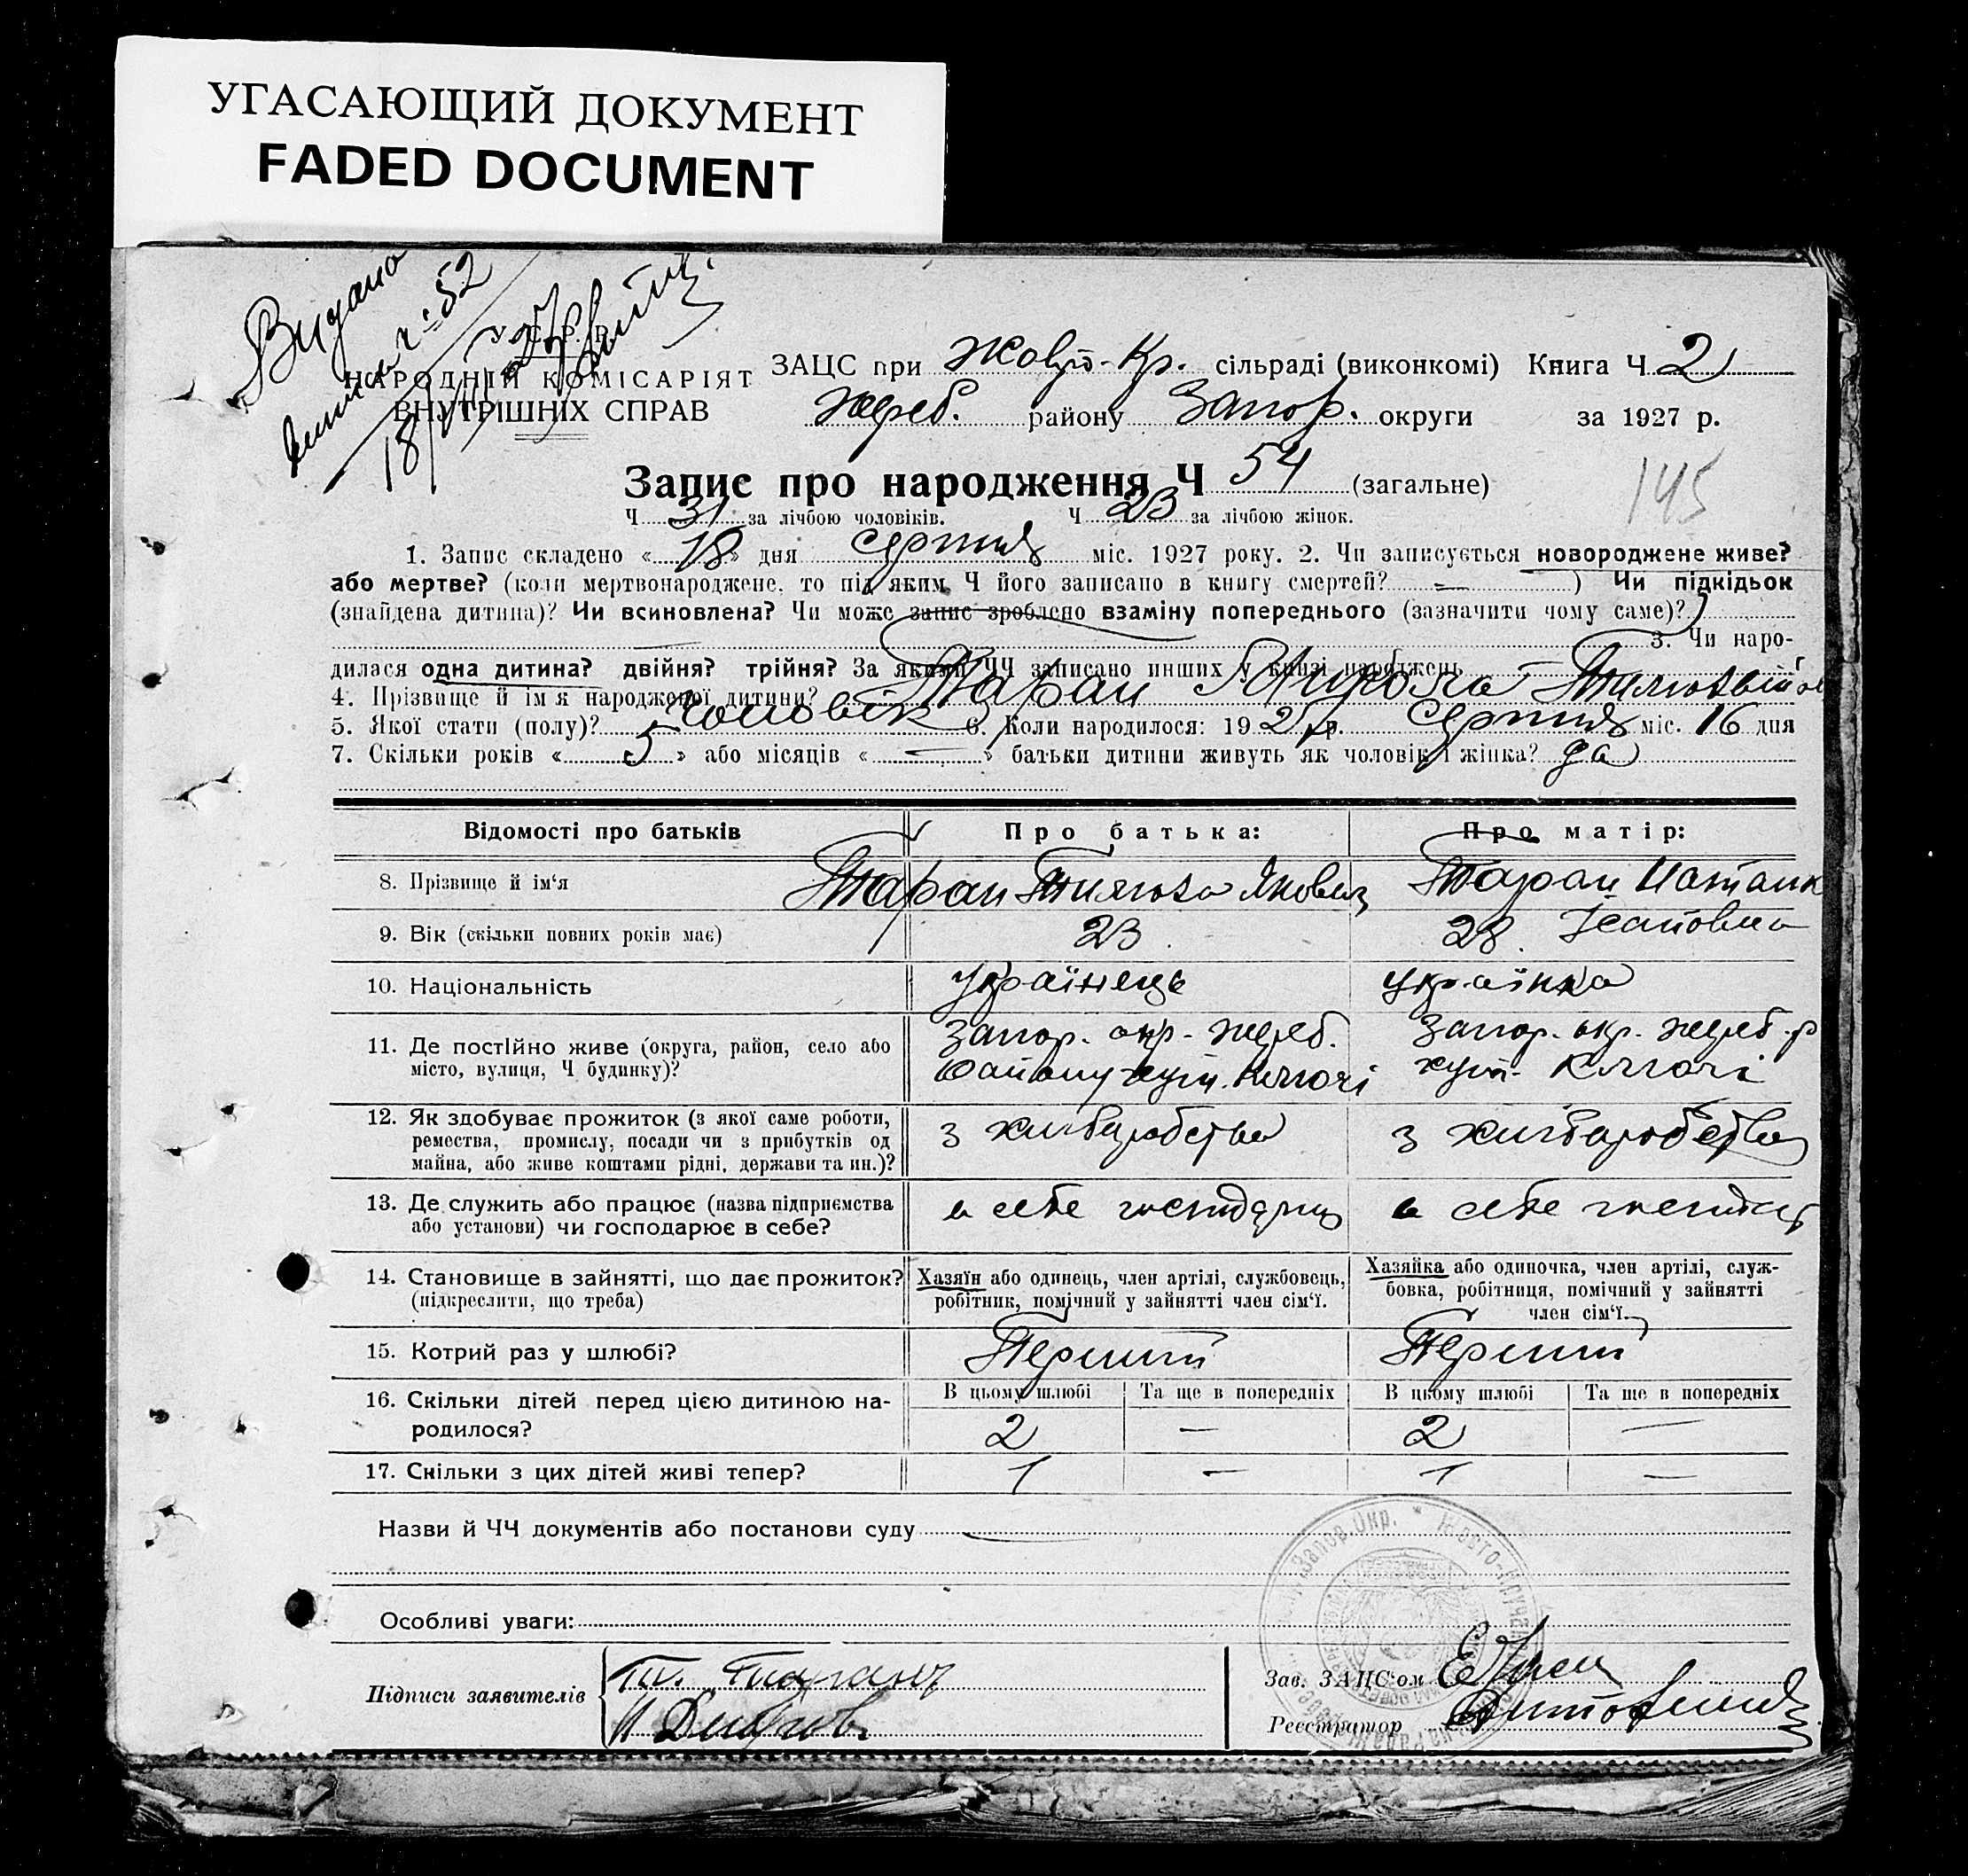 УГАСАЮЩИЙ ДОКУМЕНТ
FADED DOCUMENT
Видано
Ч 52
18/VIII 27
У. С. Р. Р.
НАРОДНІЙ КОМІСАРІЯТ
ВНУТРІШНІХ СПРАВ
ЗАЦС при Жовто-Кр. сільраді (виконкомі) Книга Ч. 2
Жереб. району Запор. округи за 1927 р.
Запис про народження Ч 54 (загальне)
145
Ч 31 за лічбою чоловіків. Ч 23 за лічбою жінок.
1. Запис складено « 18 » дня серпня міс. 1927 року. 2. Чи записується новороджене живе?
або мертве? (коли мертвонароджене, то під яким Ч його записано в книгу смертей? — ) Чи підкідьок
(знайдена дитина)? Чи всиновлена? Чи може запис зроблено взаміну попереднього (зазначити чому саме)?
3. Чи наро-
дилася одна дитина? двійня? трійня? За якими ЧЧ записано инших у книзі народжень —
4. Прізвище й ім'я народженої дитини? Таран Микола
5. Якої стати (полу)? Чоловік 6. Коли народилося: 1927 р. Серпня міс. 16 дня
7. Скільки років « 5 » або місяців « — » батьки дитини живуть як чоловік і жінка? да
Відомості про батьків Про батька: Про матір:
8. Прізвище й ім'я Таран Якович Таран
9. Вік (скільки повних років має) 23 28.
10. Національність Українець Українка
11. Де постійно живе (округа, район, село або Запор. окр. Жереб. Запор. окр. Жереб. р
місто, вулиця, Ч будинку)? району хут. Ключі хут. Ключі
12. Як здобуває прожиток (з якої саме роботи, з хліборобства з хліборобства
ремества, промислу, посади чи з прибутків од
майна, або живе коштами рідні, держави та ин.)?
13. Де служить або працює (назва підприємства в себе в себе
або установи) чи господарює в себе?
14. Становище в зайнятті, що дає прожиток? Хазяїн або одинець, член артілі, службовець, Хазяйка або одиночка, член артілі, служ-
(підкреслити, що треба) робітник, помічний у зайнятті член сім'ї. бовка, робітниця, помічний у зайнятті
член сім'ї.
15. Котрий раз у шлюбі? Перший Перший
16. Скільки дітей перед цією дитиною на- В цьому шлюбі Та ще в попередніх В цьому шлюбі Та ще в попередніх
родилося? 2 — 2 —
17. Скільки з цих дітей живі тепер? 1 — 1 —
Назви й ЧЧ документів або постанови суду —
Особливі уваги:
Підписи заявителів
Зав. ЗАЦС'ом
Реєстратор